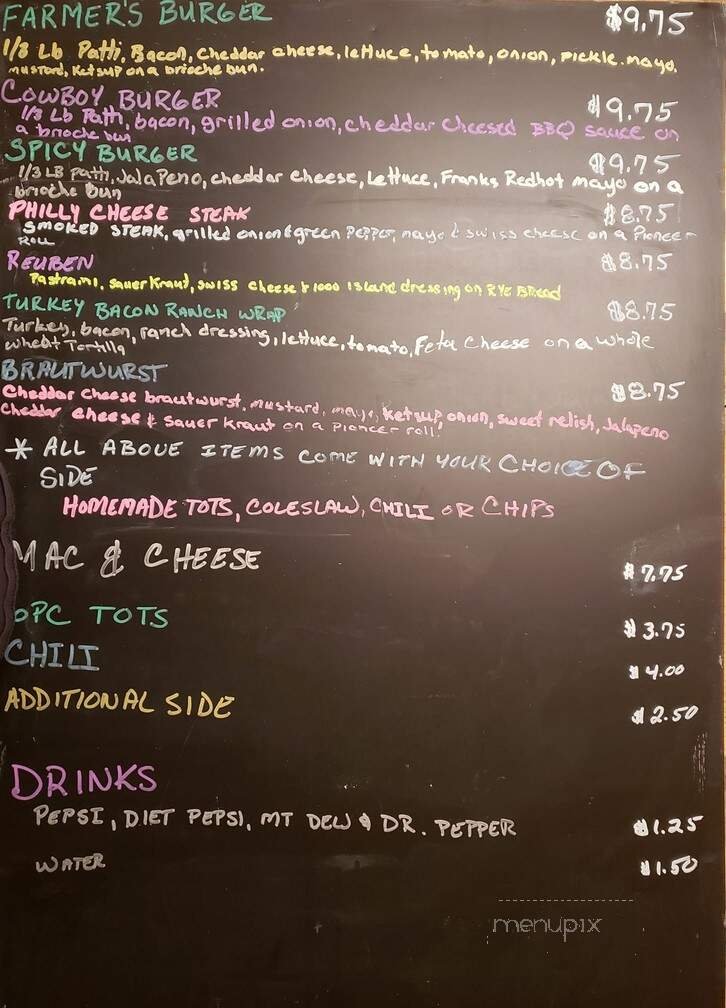 FARMER'S BURGER $9.75
1/3 Lb Patti, Bacon, Cheddar cheese, lettuce, tomato, onion, pickle, mayo,
mustard, Ketsup on a brioche bun.
COWBOY BURGER $9.75
1/3 Lb Patti, bacon, grilled onion, cheddar cheese & BBQ sauce on
a brioche bun
SPICY BURGER $9.75
1/3 LB Patti, JalaPeno, cheddar cheese, Lettuce, Franks Redhot mayo on a
brioche bun
PHILLY CHEESE STEAK $8.75
SMOKED STEAK, grilled onion & green PEPPER, mayo & swiss cheese on a Pioneer
ROLL
REUBEN $8.75
Pastrami, sauerKraut, swiss cheese & 1000 Island dressing on RYE BREAD
TURKEY BACON RANCH WRAP $8.75
Turkey, bacon, ranch dressing, lettuce, tomato, Feta Cheese on a whole
wheat Tortilla
BRAUTWURST $8.75
Cheddar Cheese brautwurst, mustard, mayo, ketsup, onion, sweet relish, Jalapeno
Cheddar cheese & Sauer Kraut on a pioneer roll.
* ALL ABOVE ITEMS COME WITH YOUR CHOICE OF
SIDE
HOMEMADE TOTS, COLESLAW, CHILI OR CHIPS
MAC & CHEESE $7.75
OPC TOTS $3.75
CHILI $4.00
ADDITIONAL SIDE $2.50
DRINKS
PEPSI, DIET PEPSI, MT DEW & DR. PEPPER $1.25
WATER $1.50
menupix